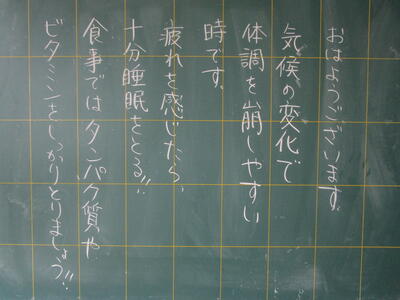 おはようございます。
気候の変化で
体調を崩しやすい
時です。
疲れを感じたら、
十分睡眠をとる!!
食事ではタンパク質や
ビタミンをしっかりとりましょう!!